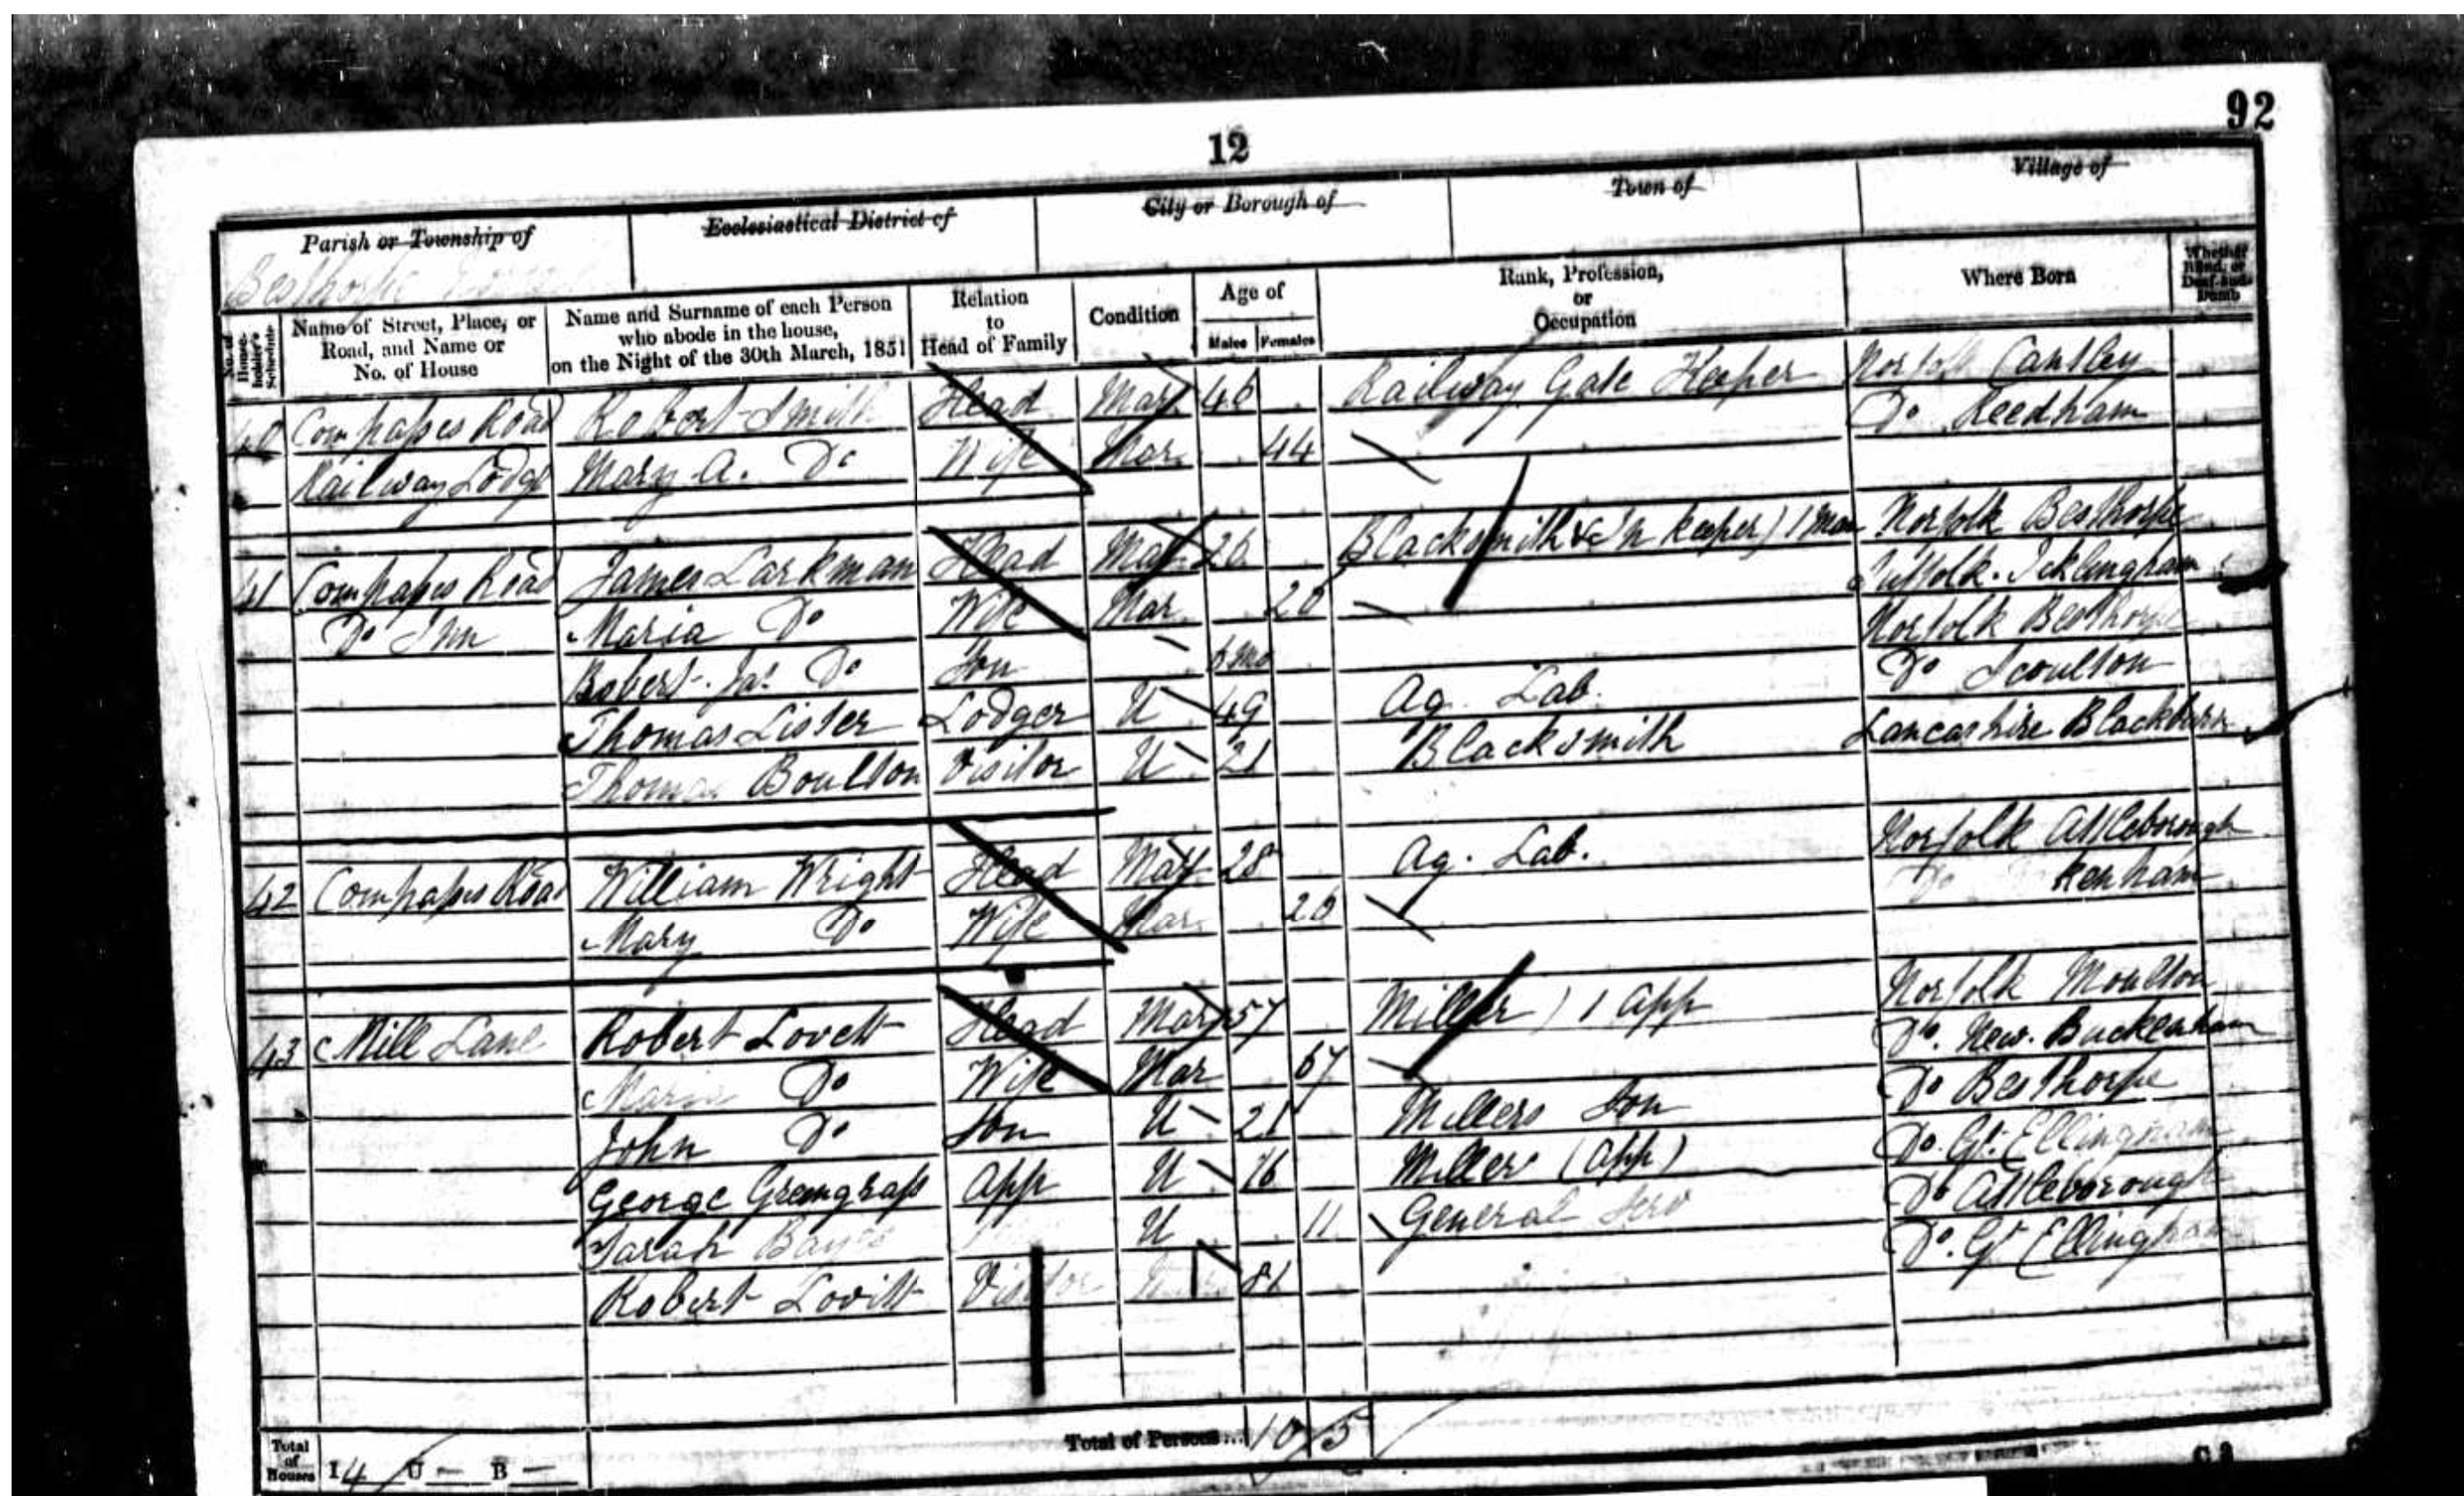 92
12
Parish or Township of Ecclesiastical District of City or Borough of Town of Village of
Besthorpe
No. of House-holder's Schedule
Name of Street, Place, or Road, and Name or No. of House
Name and Surname of each Person who abode in the house, on the Night of the 30th March, 1851
Relation to Head of Family
Condition
Age of
Males Females
Rank, Profession, or Occupation
Where Born
Whether Blind, or Deaf-and-Dumb
40 Compasses Road Robert Smith Head Mar. 46 Railway Gate Keeper Norfolk Cantley
Railway Lodge Mary A. Do Wife Mar. 44 Do Reedham
41 Compasses Road James Larkman Head Mar. 26 Blacksmith & Inn keeper) 1 Man Norfolk Besthorpe
Do Inn Maria Do Wife Mar. 20 Suffolk. Icklingham
Robert Jas. Do Son 6 mo Norfolk Besthorpe
Thomas Lister Lodger U 49 Ag. Lab. Do Scoulton
Thomas Boulton Visitor U 21 Blacksmith Lancashire Blackburn
42 Compasses Road William Wright Head Mar 28 Ag. Lab. Norfolk Attleborough
Mary Do Wife Mar. 26 Do kenham
43 Mill Lane Robert Lovett Head Mar 57 Miller) 1 App Norfolk Moulton
Maria Do Wife Mar 67 Do. New. Buckenham
John Do Son U 21 Millers Son Do Besthorpe
George Greengrass App U 16 Miller (App) Do. Gt. Ellingham
Sarah U 11 General Serv Do Attleborough
Robert Lovitt Visitor 81 Do. Gt Ellingham
Total of Houses I 4 U — B — Total of Persons... 10 5